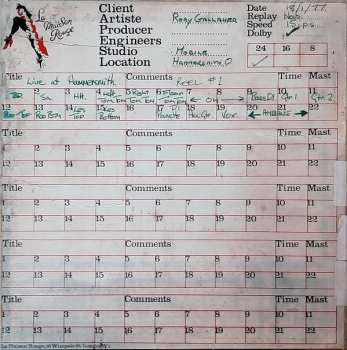 La Maison Rouge
Client
Artiste Rory Gallagher
Producer
Engineers
Studio Mobile
Location Hammersmith O
Date 18/1/77
Replay
Speed 15 i.p.s.
Dolby ✓
24 16 8
Title Comments Time Mast
Live at Hammersmith REEL #1
1 2 3 4 5 6 7 8 9 10 11
BD Sn HH Left Tom Tom Right Tom Tom Floor Tom Tom ← OH → Bass DI Gtr 1 Gtr 2
12 13 14 15 16 17 18 19 20 21 22
Bottom DI Piano Vox ← AMBIENCE →
Title Comments Time Mast
1 2 3 4 5 6 7 8 9 10 11
12 13 14 15 16 17 18 19 20 21 22
Title Comments Time Mast
1 2 3 4 5 6 7 8 9 10 11
12 13 14 15 16 17 18 19 20 21 22
Title Comments Time Mast
1 2 3 4 5 6 7 8 9 10 11
12 13 14 15 16 17 18 19 20 21 22
Title Comments Time Mast
1 2 3 4 5 6 7 8 9 10 11
12 13 14 15 16 17 18 19 20 21 22
La Maison Rouge,